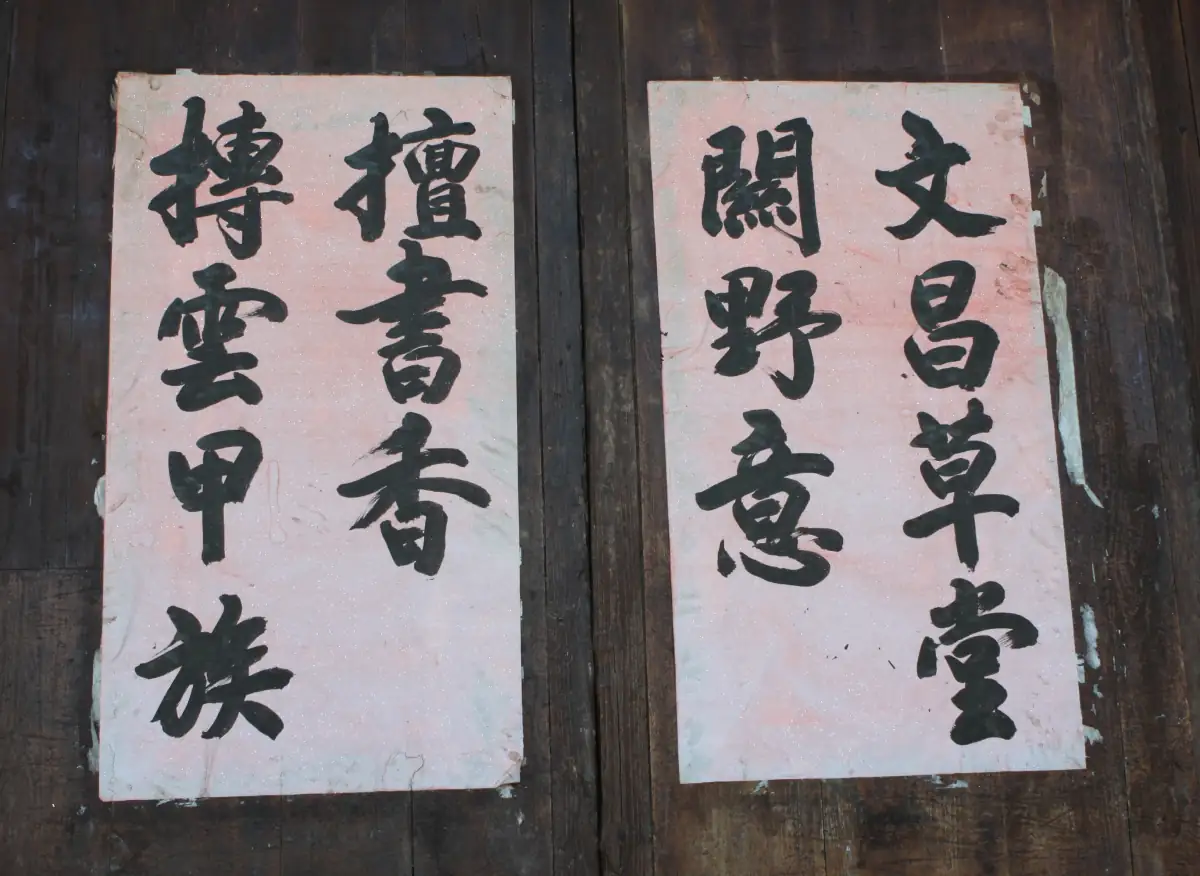 文昌草堂
野意
擅書香
摶雲甲族